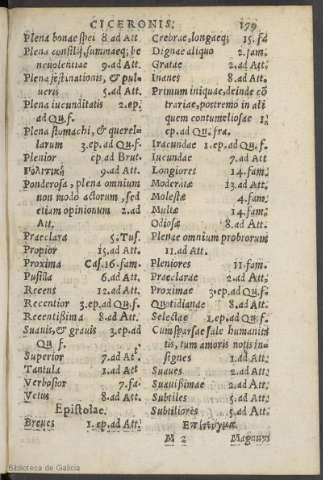 CICERONIS. 179
Plena bonae spei 8.ad Att.
Plena consilij, summaeq; be
neuolentiae 9.ad Att.
Plena festinationis, & pul-
ueris 5.ad Att.
Plena iucunditatis 2.ep.
ad Qu.f.
Plena stomachi, & querel-
larum 3.ep.ad Qu.f.
Plenior ep ad Brut.
Πολιτικὴ 9.ad Att.
Ponderosa, plena omnium
non modo actorum, sed
etiam opinionum 2.ad
Att.
Praeclara 5.Tus.
Propior 15.ad Att.
Proxima Cas.16.fam.
Pusilla 6.ad Att.
Recens 12.ad Att.
Recentior 3.ep.ad Qu.f.
Recentissima 8.ad Att.
Suauis, & grauis 3.ep.ad
Qu f.
Superior 7.ad Att.
Tantula 1.ad Att
Verbosior 7.fa.
Vetus 8.ad Att.
Epistolae.
Breues 1.ep.ad Att.
Crebrae, longaeq; 15.fa
Dignae aliquo 2.fam.
Gratae 2.ad Att.
Inanes 8.ad Att.
Primum iniquae, deinde cō
trariae, postremo in ali
quem contumeliosae 1.
ep.ad Qu.fra.
Iracundae 1.ep.ad Qu.f.
Iucundae 7.ad Att
Longiores 14.fam.
Moderatae 13.ad Att.
Molestae 4.fam.
Multae 14.fam.
Odiosae 8.ad Att.
Plenae omnium probrorum
11.ad Att.
Pleniores 11.fam.
Praeclarae 2.ad Att.
Proximae 3.ep.ad Qu.f.
Quotidianae 8.ad Att.
Selectae 1.ep.ad Qu.f.
Cum sparsae sale humanita
tis, tum amoris notis in-
signes 1.ad Att.
Suaues 2.ad Att.
Suauissimae 2.ad Att.
Subtiles 5.ad Att.
Subtiliores 5.ad Att.
M 2 Magnum
Biblioteca de Galicia